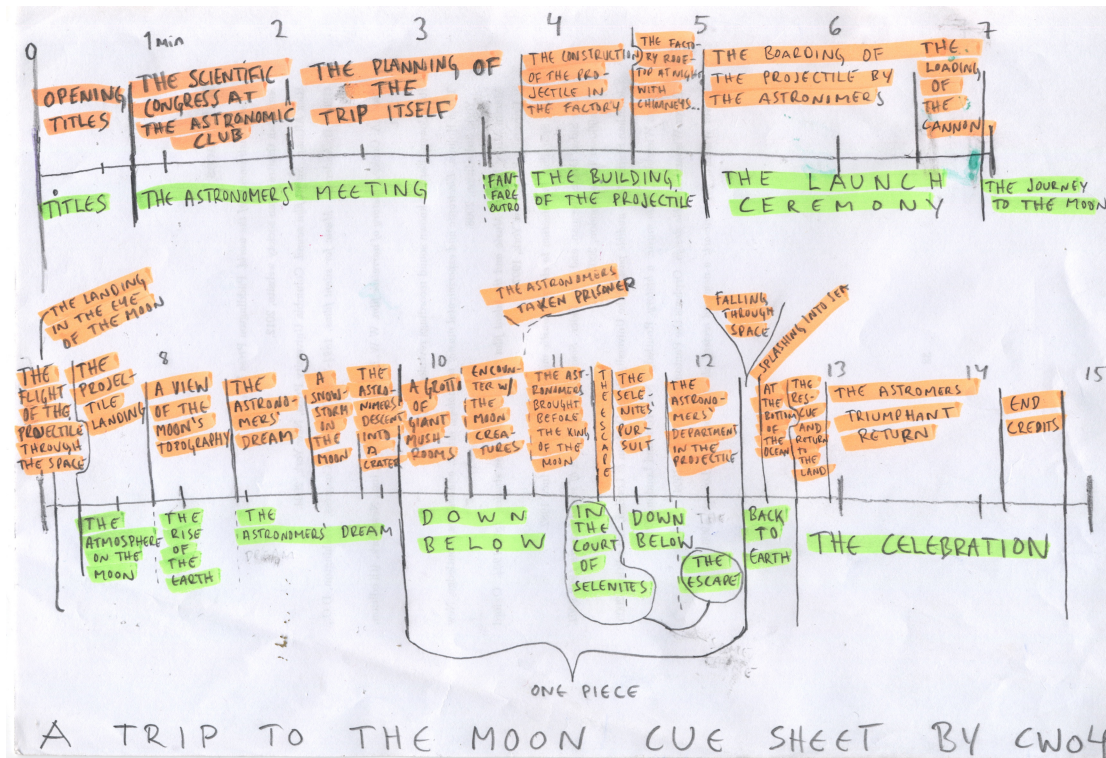 0
1 min
2
3
4
5
6
7
OPENING
TITLES
THE SCIENTIFIC
CONGRESS AT
THE ASTRONOMIC
CLUB
THE PLANNING OF
THE
TRIP ITSELF
THE CONSTRUCTION
OF THE PRO-
JECTILE IN
THE FACTORY
THE FACTO-
RY ROOF-
TOP AT NIGHT
WITH
CHIMNEYS...
THE BOARDING OF
THE PROJECTILE BY
THE ASTRONOMERS
THE
LOADING
OF
THE
CANNON
TITLES
THE ASTRONOMERS' MEETING
FAN-
FARE
OUTRO
THE BUILDING
OF THE PROJECTILE
THE LAUNCH
CEREMONY
THE JOURNEY
TO THE MOON
THE LANDING
IN THE EYE
OF THE MOON
THE ASTRONOMERS
TAKEN PRISONER
FALLING
THROUGH
SPACE
SPLASHING INTO SEA
7
8
9
10
11
12
13
14
15
THE
FLIGHT
OF THE
PROJECTILE
THROUGH
THE SPACE
THE
PROJEC-
TILE
LANDING
A VIEW
OF THE
MOON'S
TOPOGRAPHY
THE
ASTRONO-
MERS'
DREAM
A
SNOW-
STORM
ON
THE
MOON
THE
ASTRO-
NOMERS
DESCENT
INTO
A
CRATER
A GROTTO
OF
GIANT
MUSH-
ROOMS
ENCOUN-
TER W/
THE
MOON
CREA-
TURES
THE AST-
RONOMERS
BROUGHT
BEFORE
THE KING
OF THE
MOON
THE ESCAPE
THE
SELE-
NITES'
PUR-
SUIT
THE
ASTRONO-
MERS'
DEPARTMENT
IN THE
PROJECTILE
AT
THE
BOTTOM
OF
THE
OCEAN
THE
RES-
CUE
AND
RETURN
TO
THE
LAND
THE ASTROMERS
TRIUMPHANT
RETURN
END
CREDITS
THE
ATMOSPHERE
ON THE
MOON
THE
RISE
OF
THE
EARTH
THE
ASTRONOMERS' DREAM
DOWN
BELOW
IN
THE
COURT
OF
SELENITES
DOWN
BELOW
THE
ESCAPE
BACK
TO
EARTH
THE CELEBRATION
ONE PIECE
A TRIP TO THE MOON CUE SHEET BY CW04